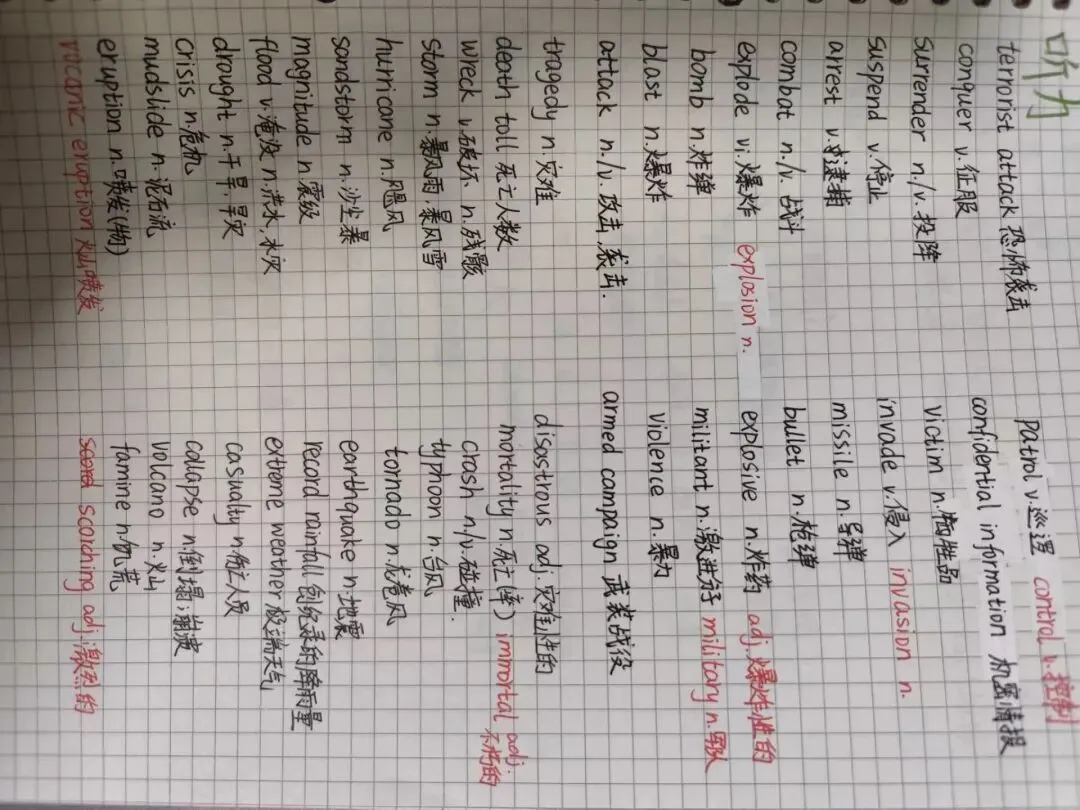 听力
terrorist attack 恐怖袭击
conquer v.征服
surrender n./v. 投降
suspend v.停止
arrest v.逮捕
combat n./v. 战斗
explode vi.爆炸 explosion n.
bomb n.炸弹
blast n.爆炸
attack n./v. 攻击,袭击.
tragedy n.灾难
death toll 死亡人数
wreck v.破坏 n.残骸
storm n.暴风雨,暴风雪
hurricane n.飓风
sandstorm n.沙尘暴
magnitude n.震级
flood v.淹没 n.洪水,水灾
drought n.干旱 旱灾
crisis n.危机
mudslide n.泥石流
eruption n.喷发(物)
vocanic eruption 火山喷发
patrol v.巡逻 control v.控制
confidential information 机密情报
victim n.牺牲品
invade v.侵入 invasion n.
missile n.导弹
bullet n.枪弹
explosive n.炸药 adj.爆炸性的
militant n.激进分子 military n.军队
violence n.暴力
armed campaign 武装战役
disastrous adj.灾难性的
mortality n.死亡(率) immortal adj.不朽的
crash n./v.碰撞.
typhoon n.台风
tornado n.龙卷风
earthquake n.地震
record rainfall 创纪录的降雨量
extreme weather 极端天气
casualty n.伤亡人员
collapse n.倒塌;崩溃
volcano n.火山
famine n.饥荒
scorching adj.激烈的